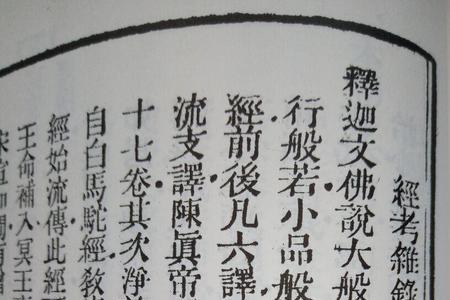 經考雜錄
釋迦文佛說大般
行般若小品般
經前後凡六譯
流支譯陳眞帝
十七卷其次淨
自白馬馱經敎
經始流傳此經
王命補入冥王